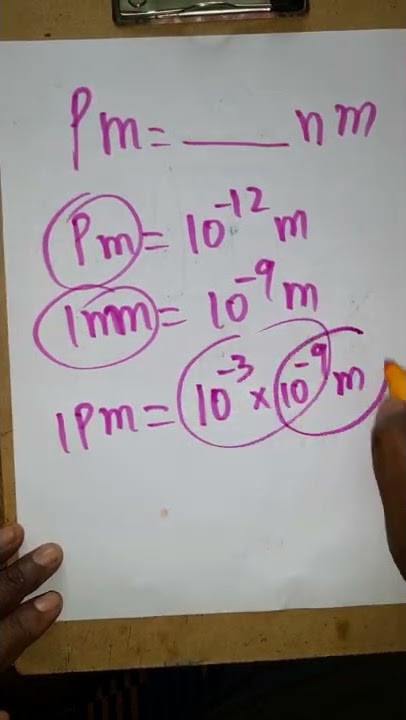 Pm = ___ nm
Pm = 10⁻¹² m
1nm = 10⁻⁹ m
1Pm = 10⁻³ × 10⁻⁹ m